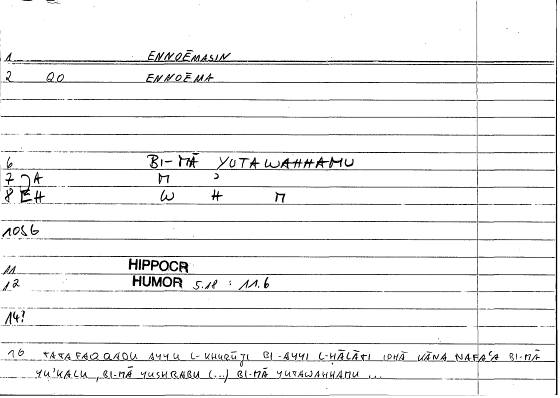 1 ENNOĒMASIN
2 QO ENNOĒMA
6 BI-MĀ YUTAWAHHAMU
7 A M ʾ
8 H W H M
1056
11 HIPPOCR
12 HUMOR 5.18 : 11.6
14?
16 TATAFAQQADU AYYU L-KHURŪJI BI-AYYI L-ḤĀLĀTI IDHĀ KĀNA NAFAʿA BI-MĀ
YU'KALU, BI-MĀ YUSHRABU (...) BI-MĀ YUTAWAHHAMU ...